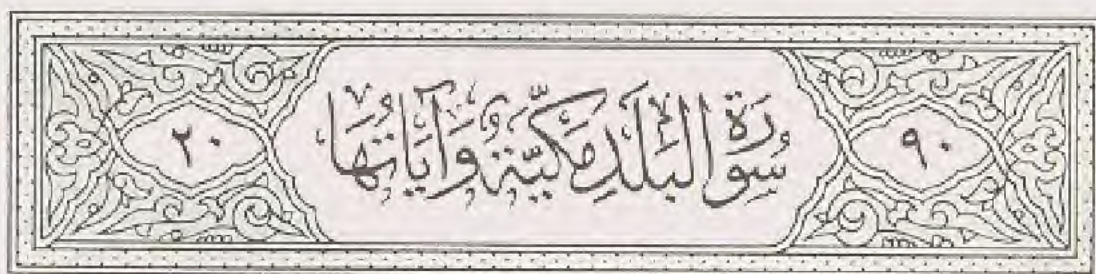 ٩٠ سُورَةُ الْبَلَدِ مَكِّيَّةٌ وَآيَاتُهَا ٢٠